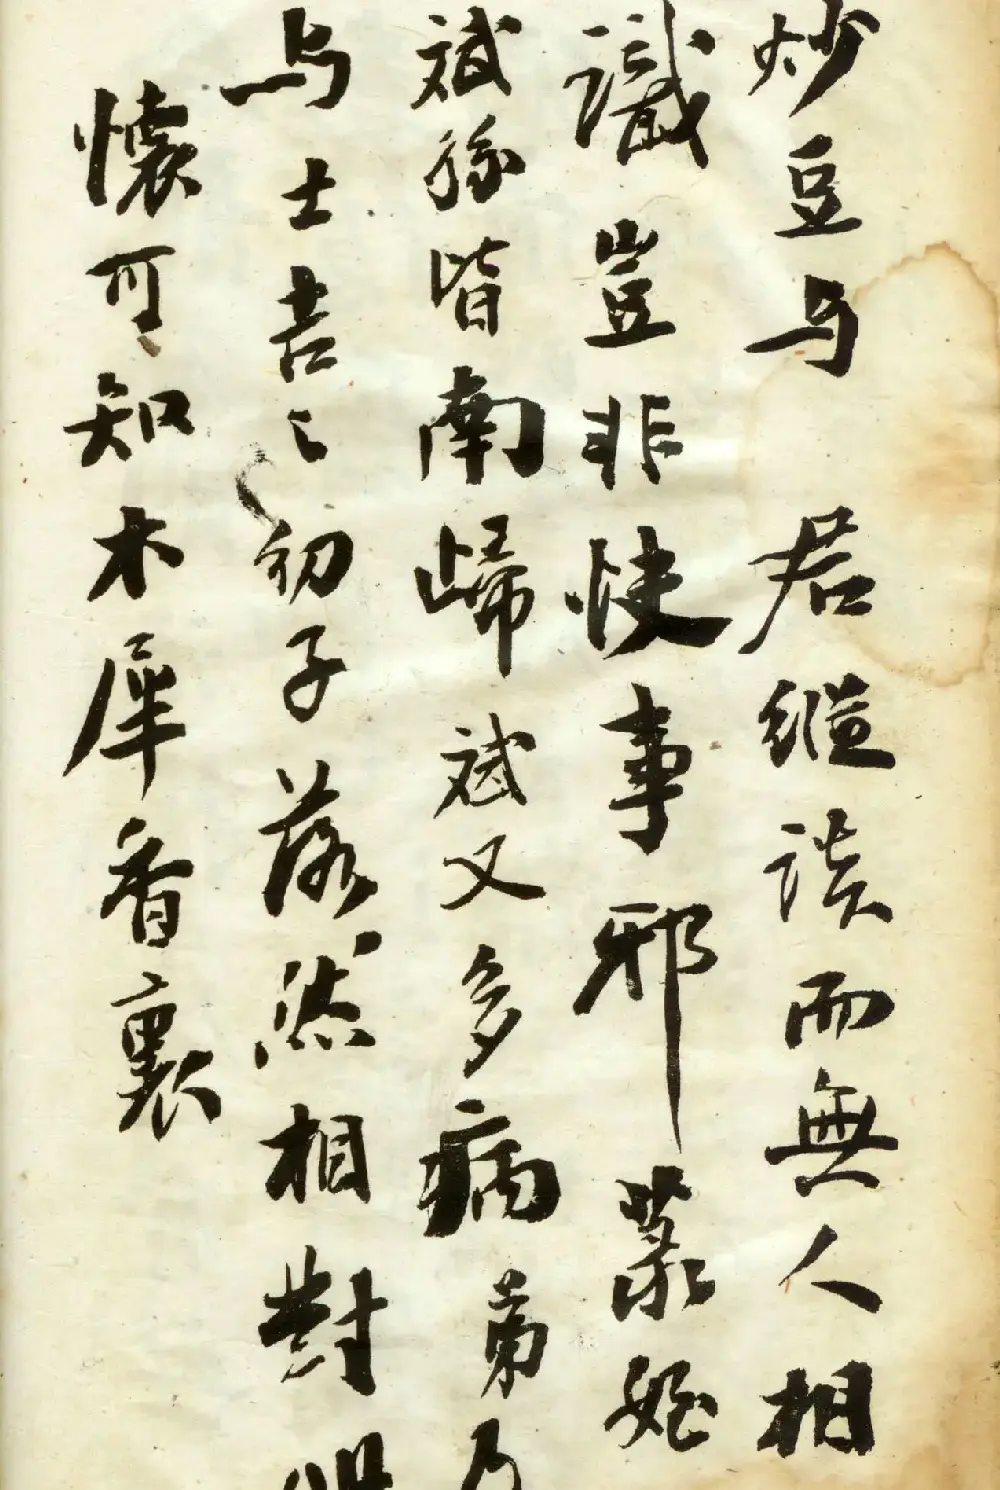 炒豆与君纵談而無人相
識豈非快事邪蒙姪
斌孫皆南歸斌又多病弟乃
与士吉之初子落然相對
懷可知木犀香裏